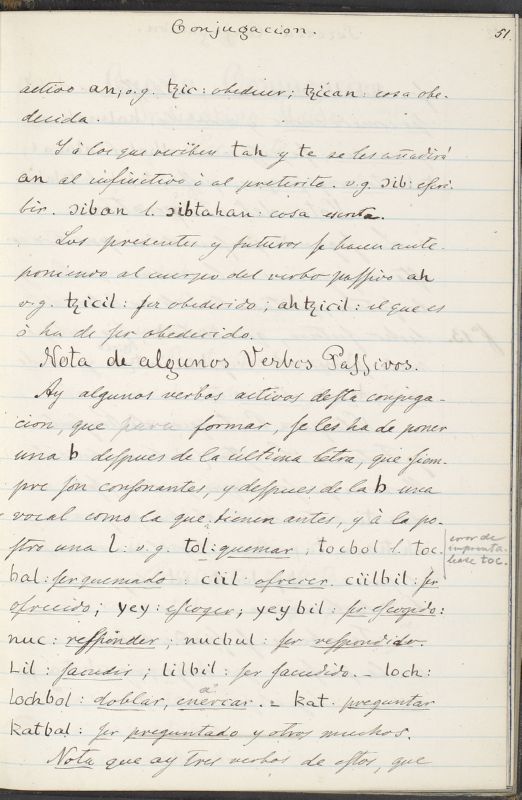 Conjugacion.
51.
activo an; v.g. tzic: obedecer; tzican: cosa obe-
decida.
Y à los que reciben tah y te se les añadirá
an al infinitivo ò al preterito. v.g. ɔib: escri-
bir. ɔiban l. ɔibtahan: cosa escrita.
Los presentes y futuros se hacen ante
poniendo al cuerpo del verbo passivo ah
v.g. tzicil: ser obedecido; ahtzicil: el que es
ò ha de ser obedecido.
Nota de algunos Verbos Passivos.
Ay algunos verbos activos desta conjuga-
cion, que para formar, se les ha de poner
una b despues de la ultima letra, que siem-
pre son consonantes, y despues de la b una
vocal como la que tienen antes, y à la po-
stre una l: v.g. tol: quemar; tocbol l. toc-
bal: ser quemado: cül: ofrecer. cülbil: ser
ofrecido; yey: escoger; yeybil: ser escogido:
nuc: responder; nucbul: ser respondido.
Lil: sacudir; lilbil: ser sacudido. - loch:
lochbol: doblar, encorcar. = kat: preguntar
katbal: ser preguntado y otros muchos.
Nota que ay tres verbos de estos, que
error de
imprenta.
lease toc.